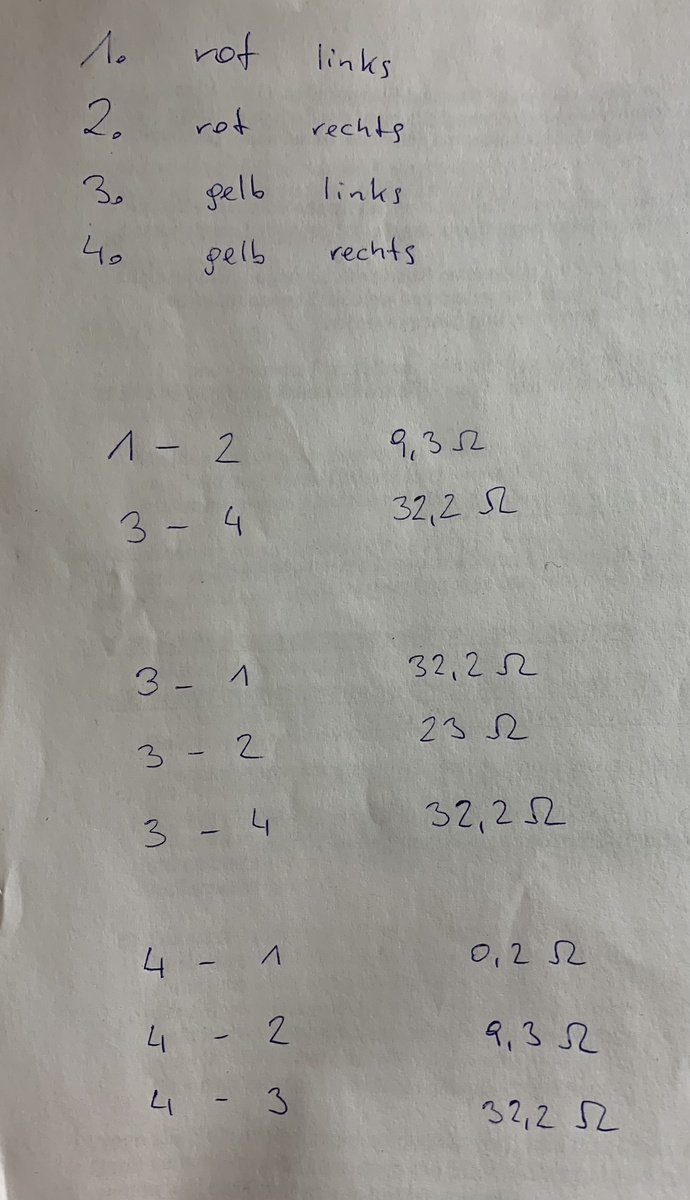 1. rot links
2. rot rechts
3. gelb links
4. gelb rechts
1 - 2 9,3 Ω
3 - 4 32,2 Ω
3 - 1 32,2 Ω
3 - 2 23 Ω
3 - 4 32,2 Ω
4 - 1 0,2 Ω
4 - 2 9,3 Ω
4 - 3 32,2 Ω